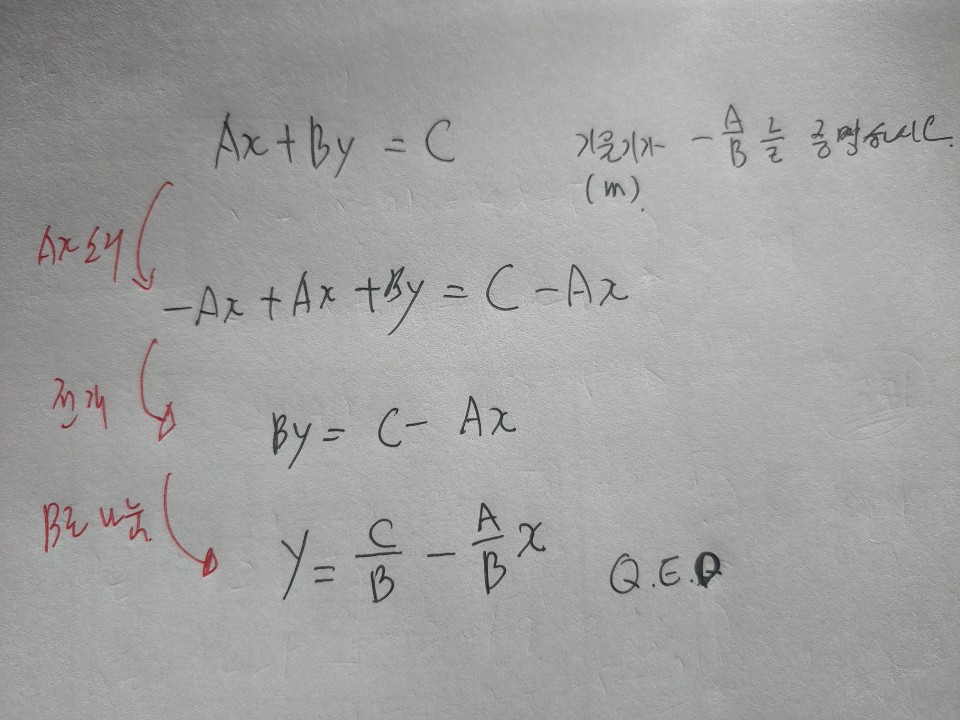 Ax + By = C 기울기가 - A/B 를 증명하시오.
(m)
Ax 소거
-Ax + Ax + By = C - Ax
전개
By = C - Ax
B로 나눔
y = C/B - A/B x Q.E.D